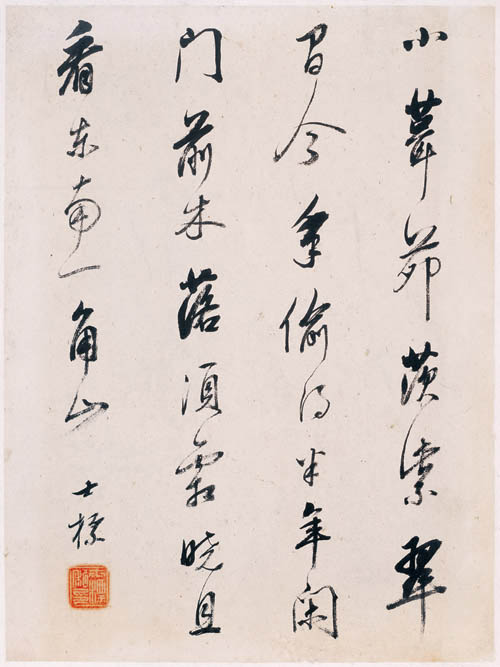 小葺茆茨紫翠
間今年偷得半年閑
門前木落須霜曉且
看東南一角山
士標